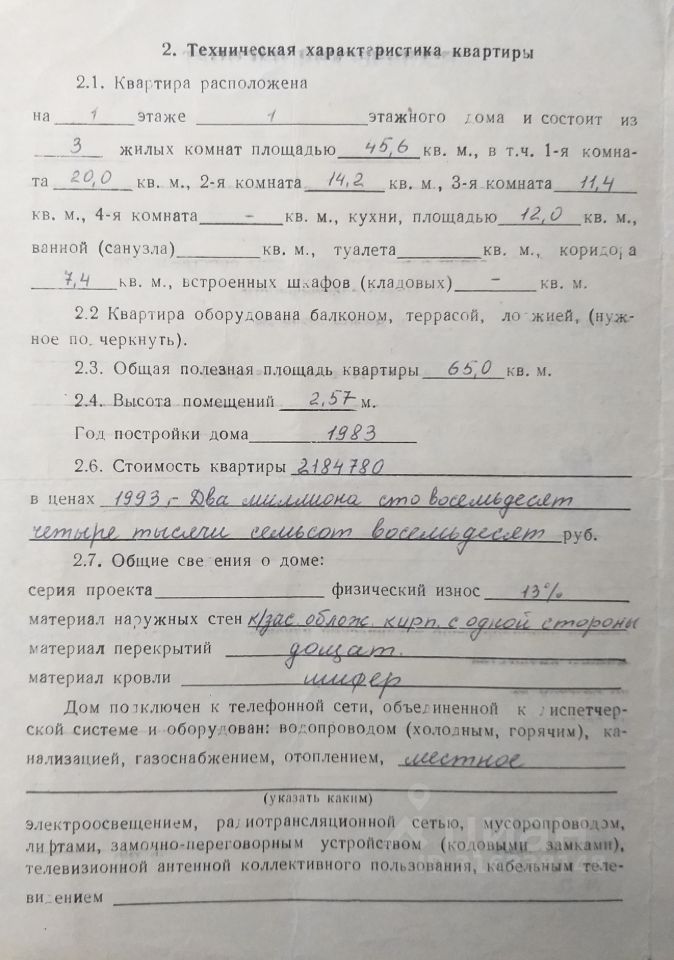 2. Техническая характеристика квартиры
2.1. Квартира расположена
на 1 этаже 1 этажного дома и состоит из
3 жилых комнат площадью 45,6 кв. м., в т.ч. 1-я комна-
та 20,0 кв. м., 2-я комната 14,2 кв. м., 3-я комната 11,4
кв. м., 4-я комната - кв. м., кухни, площадью 12,0 кв. м.,
ванной (санузла) кв. м., туалета кв. м., коридора
7,4 кв. м., встроенных шкафов (кладовых) - кв. м.
2.2 Квартира оборудована балконом, террасой, лоджией, (нуж-
ное подчеркнуть).
2.3. Общая полезная площадь квартиры 65,0 кв. м.
2.4. Высота помещений 2,57 м.
Год постройки дома 1983
2.6. Стоимость квартиры 2184780
в ценах 1993,- Два миллиона сто восемьдесят
четыре тысячи семьсот восемьдесят руб.
2.7. Общие сведения о доме:
серия проекта физический износ 13%
материал наружных стен к/зас. облож. кирп. с одной стороны
материал перекрытий дощат.
материал кровли шифер
Дом подключен к телефонной сети, объединенной к диспетчер-
ской системе и оборудован: водопроводом (холодным, горячим), ка-
нализацией, газоснабжением, отоплением, местное
(указать каким)
электроосвещением, радиотрансляционной сетью, мусоропроводом,
лифтами, замочно-переговорным устройством (кодовыми замками),
телевизионной антенной коллективного пользования, кабельным теле-
видением